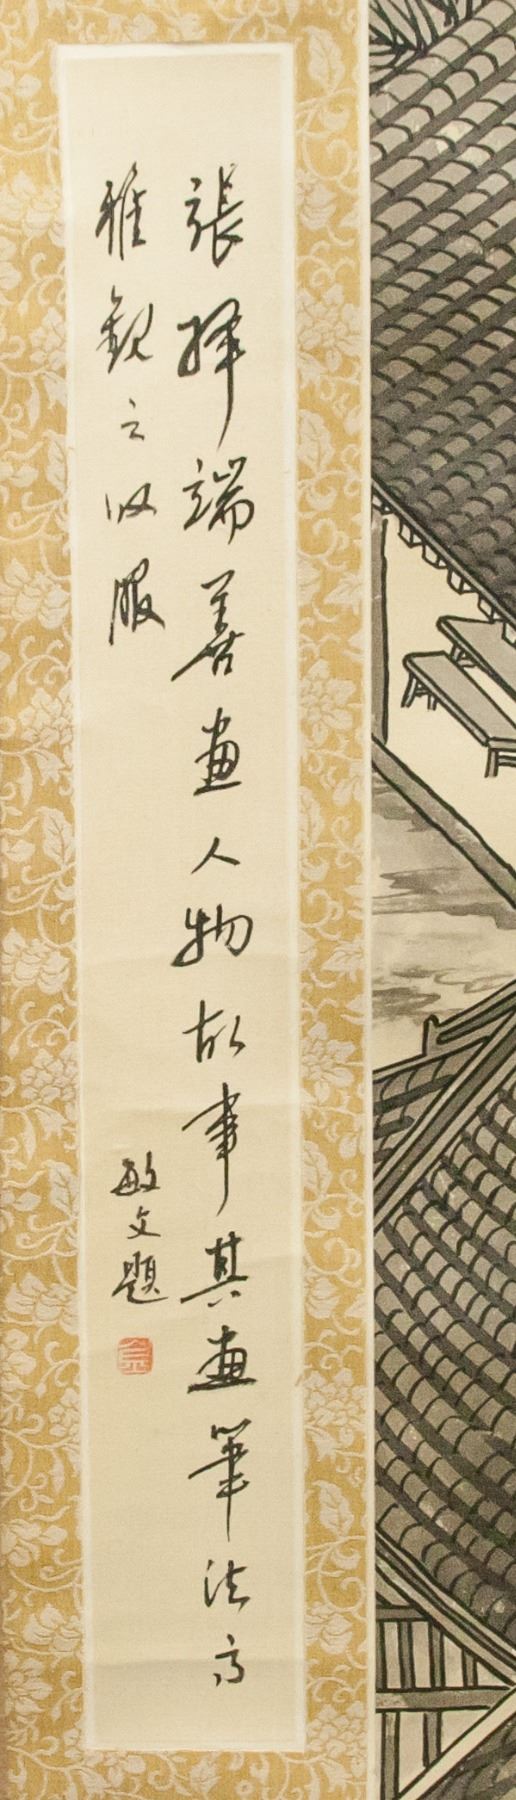 張擇端善畫人物故事其畫筆法高
雅觀之收服
敏文題